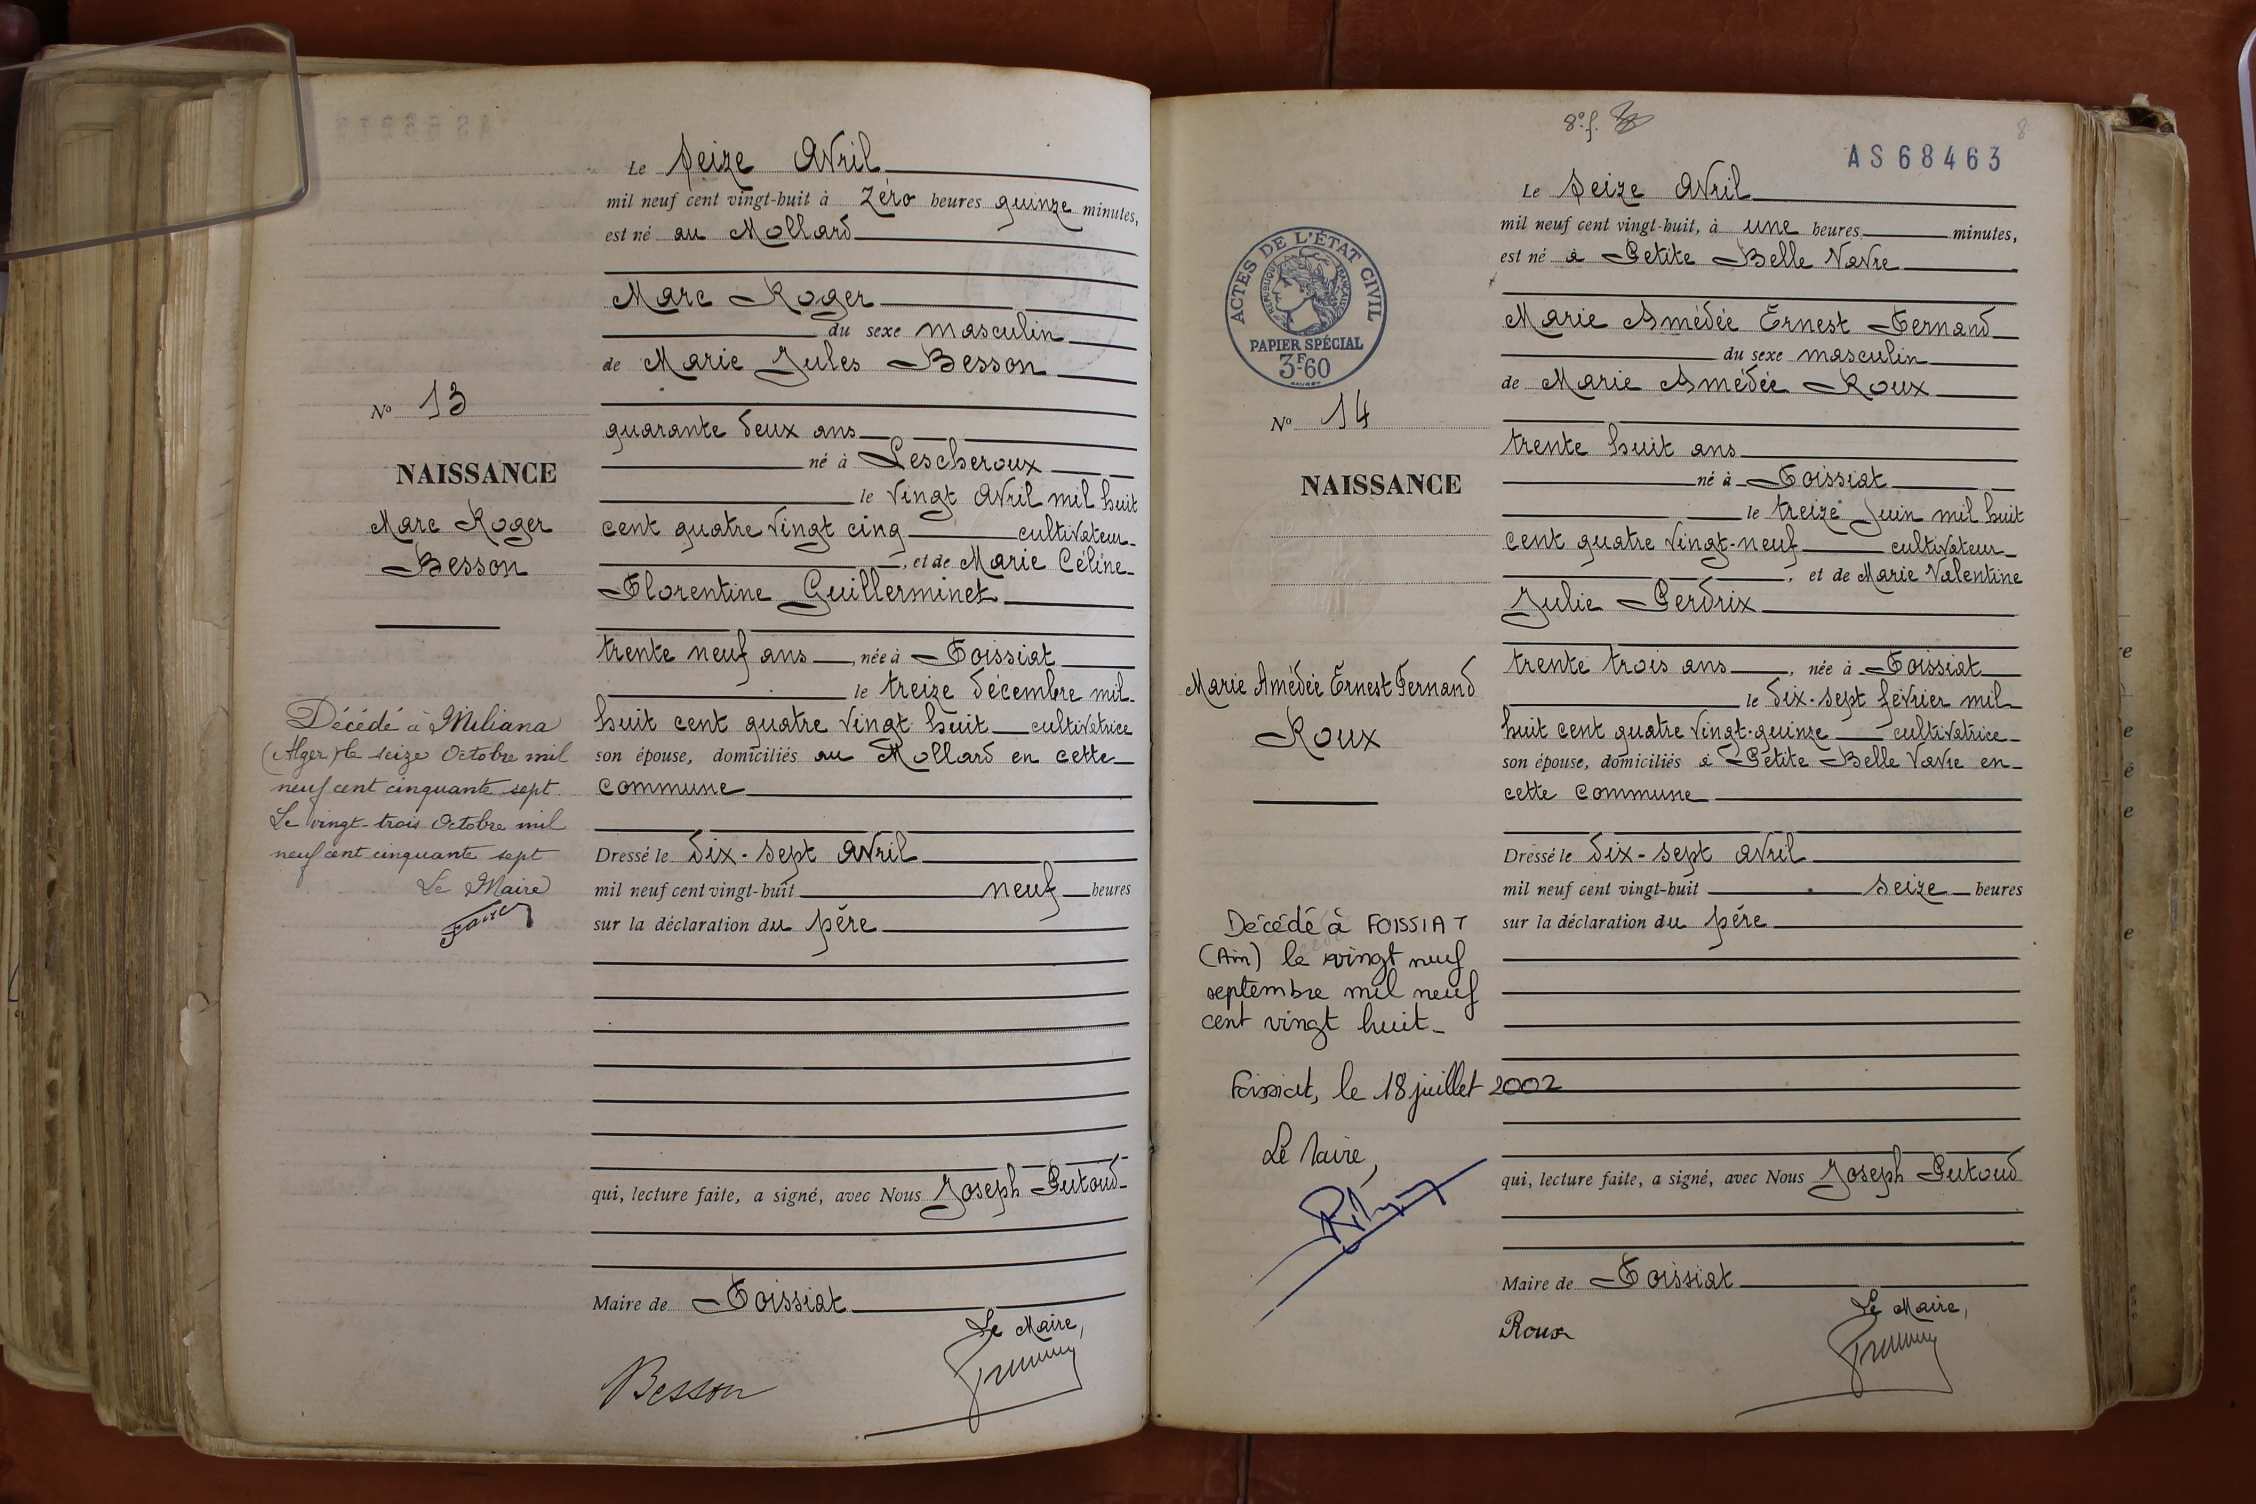 Le seize Avril
mil neuf cent vingt-huit à zéro heures quinze minutes,
est né au Mollard
Marc Roger
du sexe masculin
de Marie Jules Besson
No 13
quarante deux ans
né à Lescheroux
NAISSANCE
le vingt Avril mil huit
Marc Roger
cent quatre vingt cinq cultivateur
Besson
, et de Marie Céline
Florentine Guillerminet
trente neuf ans, née à Foissiat
le treize décembre mil
huit cent quatre vingt huit cultivatrice
son épouse, domiciliés au Mollard en cette
commune
Décédé à Miliana
(Alger) le seize Octobre mil
neuf cent cinquante sept.
Le vingt-trois Octobre mil
neuf cent cinquante sept
Le Maire
Dressé le dix-sept Avril
mil neuf cent vingt-huit neuf heures
sur la déclaration du père
qui, lecture faite, a signé, avec Nous Joseph Putoud
Maire de Foissiat
Le Maire,
Besson
8e. f.
8
AS 68463
Le seize Avril
mil neuf cent vingt-huit, à une heures minutes,
est né à Petite Belle Vavre
ACTES DE L'ÉTAT CIVIL
RÉPUBLIQUE FRANÇAISE
PAPIER SPÉCIAL
3F60
Marie Amédée Ernest Fernand
du sexe masculin
de Marie Amédée Roux
No 14
trente huit ans
né à Foissiat
NAISSANCE
le treize Juin mil huit
cent quatre vingt-neuf cultivateur
, et de Marie Valentine
Julie Perdrix
trente trois ans, née à Foissiat
Marie Amédée Ernest Fernand
Roux
le dix-sept février mil
huit cent quatre vingt-quinze cultivatrice
son épouse, domiciliés à Petite Belle Vavre en
cette commune
Dressé le dix-sept avril
mil neuf cent vingt-huit seize heures
sur la déclaration du père
Décédé à FOISSIAT
(Ain) le vingt neuf
septembre mil neuf
cent vingt huit-
Foissiat, le 18 juillet 2002
Le Maire,
qui, lecture faite, a signé, avec Nous Joseph Putoud
Maire de Foissiat
Le Maire,
Roux